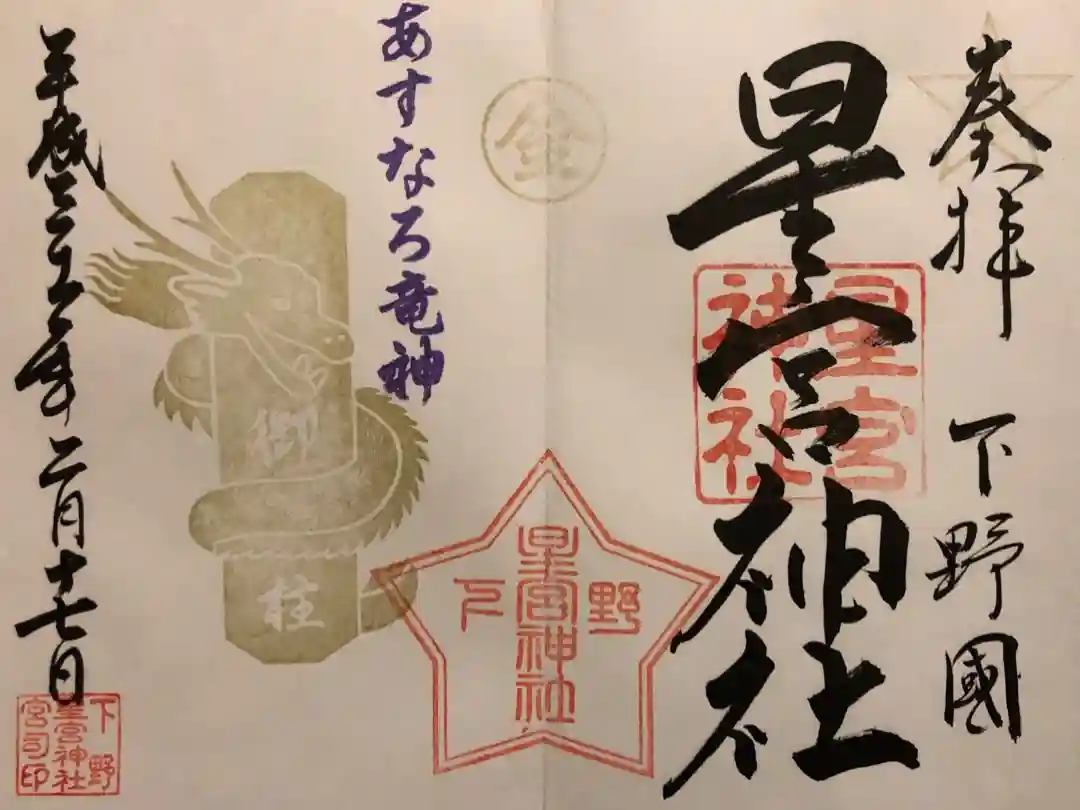 奉拝 下野國
星宮神社
星宮
神社
金
下
星宮神社
野
あすなろ竜神
御柱
平成三十一年二月十七日
下野
星宮神社
宮司印